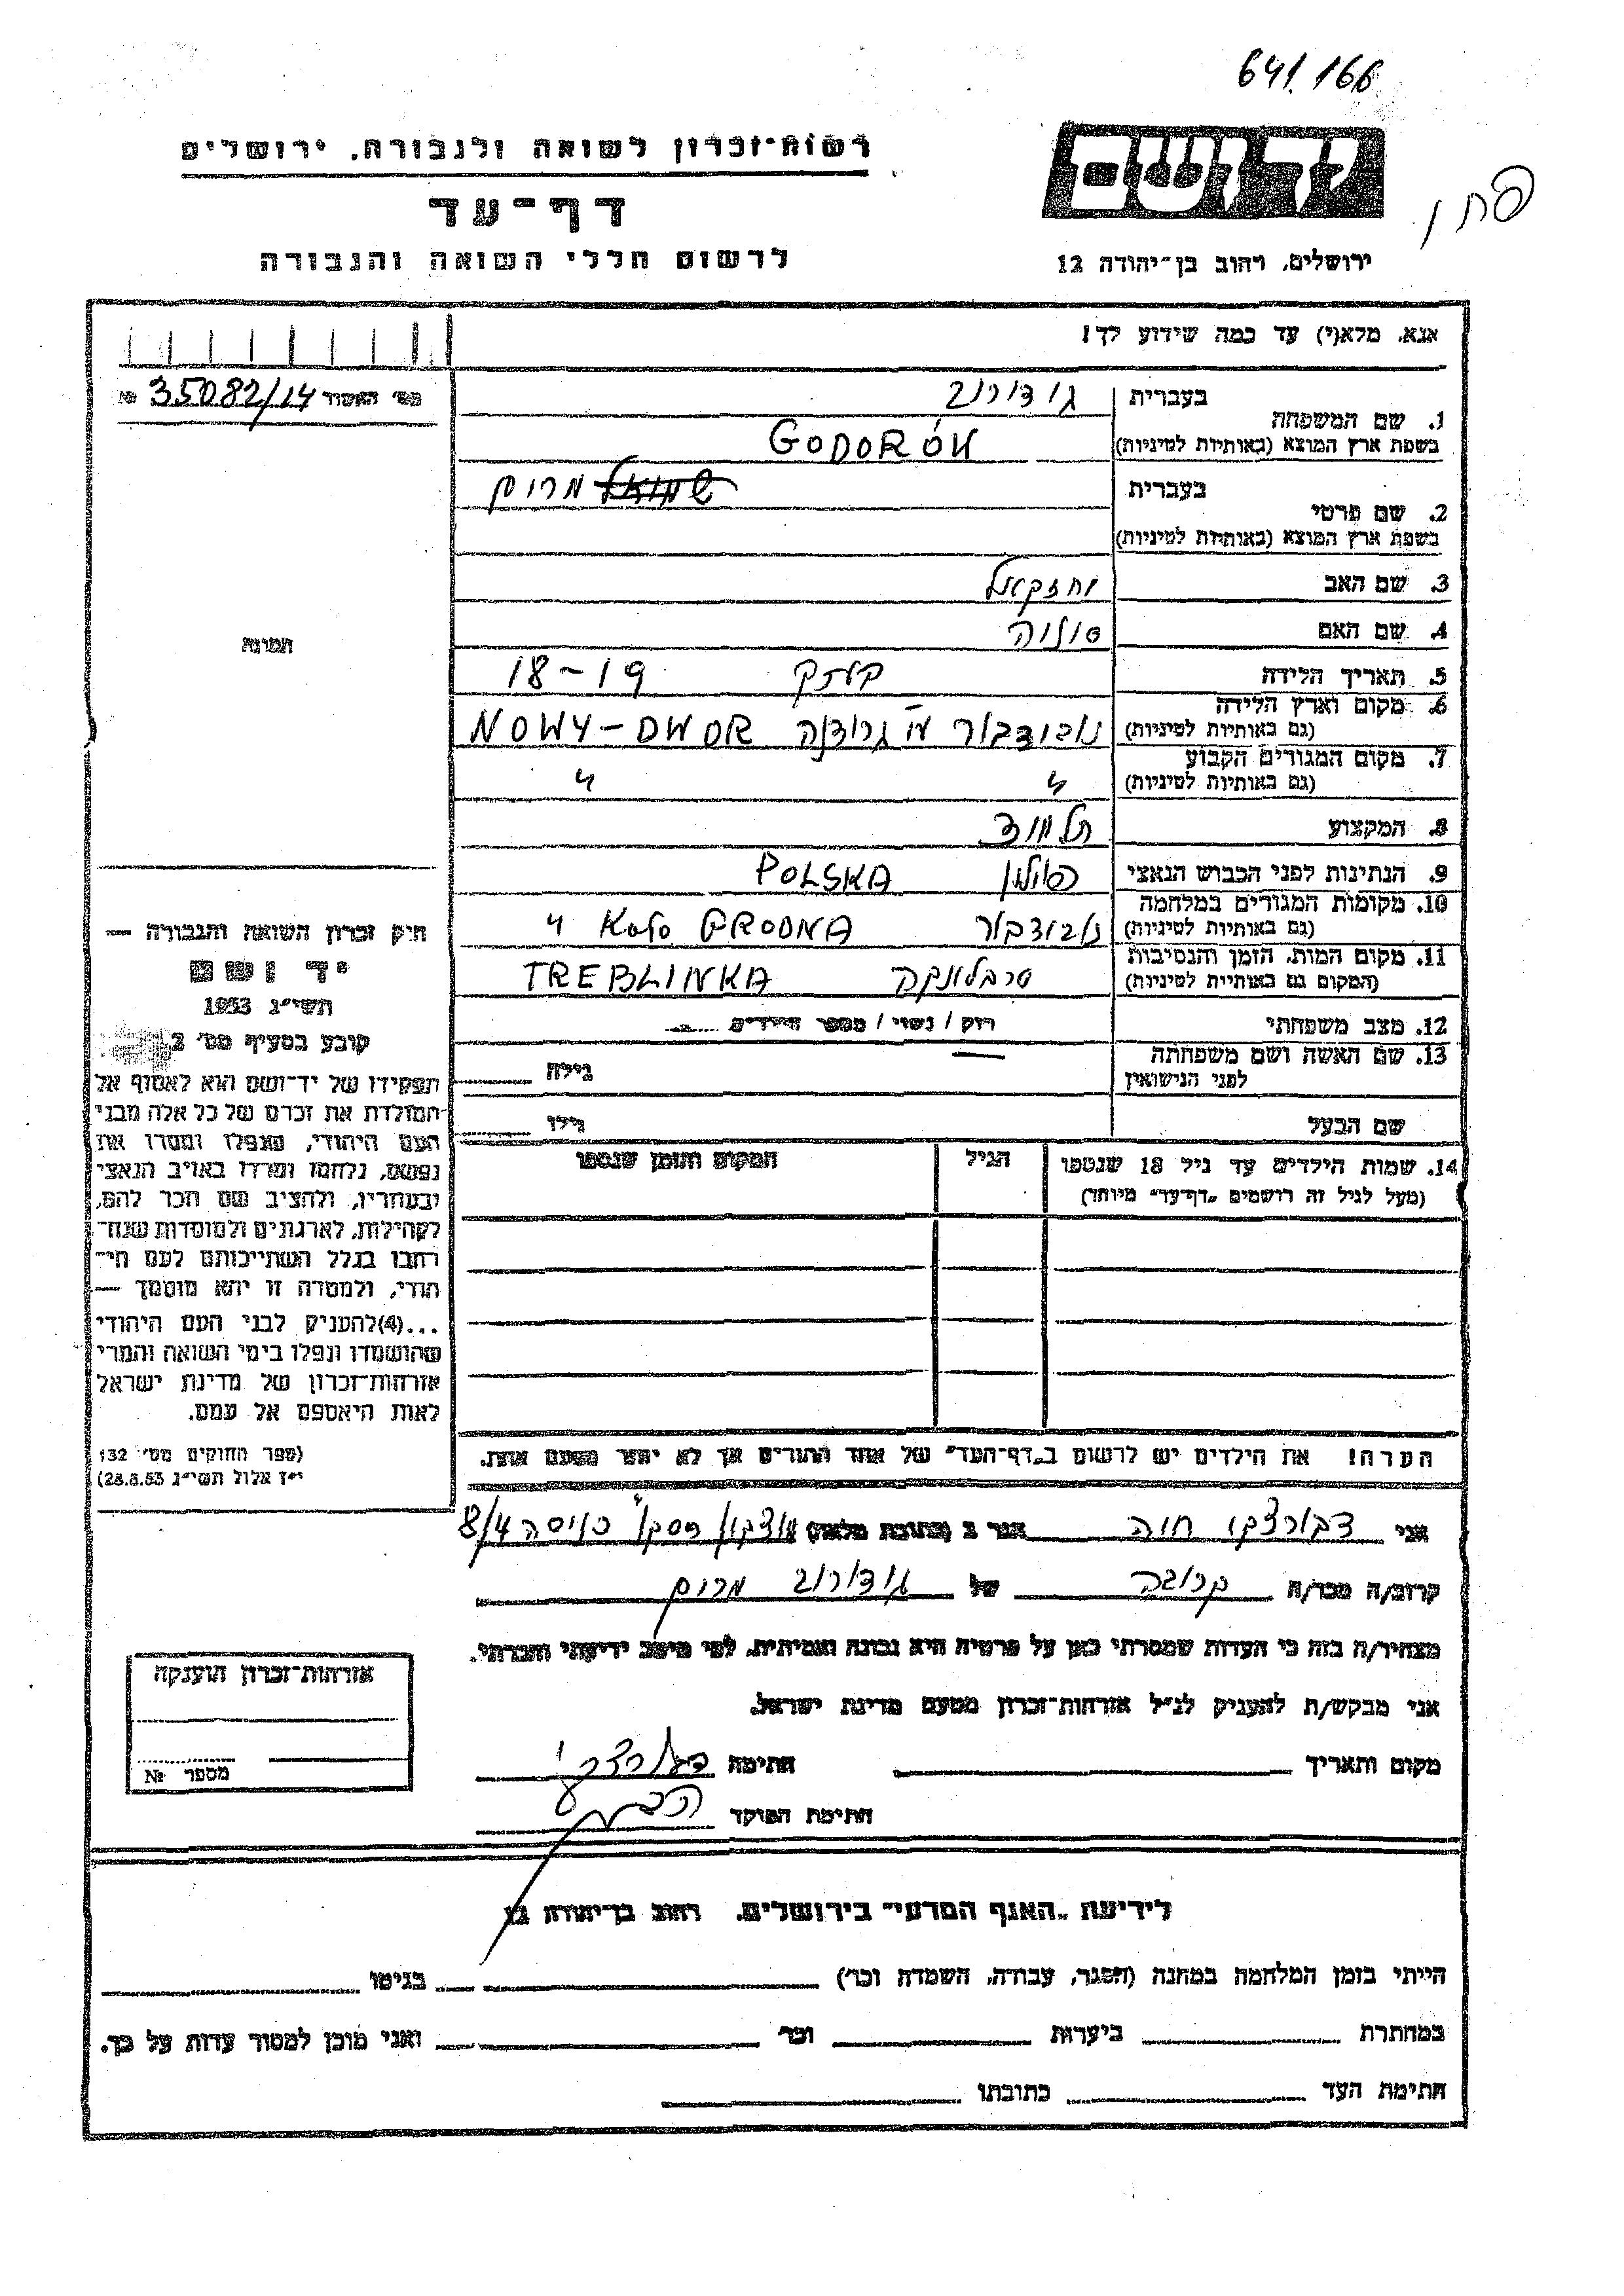 641.166
רשות-זכרון לשואה ולגבורה. ירושלים
יד ושם
דף-עד
לרשום חללי השואה והגבורה
ירושלים, רחוב בן-יהודה 12
אנא, מלא(י) עד כמה שידוע לך!
35082/14 №
1. שם המשפחה
בעברית גודורוב
בשפת ארץ המוצא (באותיות לטיניות) GODORÓW
2. שם פרטי
בעברית שמואל מרים
בשפת ארץ המוצא (באותיות לטיניות)
3. שם האב יחזקאל
4. שם האם
5. תאריך הלידה 18-19
6. מקום וארץ הלידה
(גם באותיות לטיניות) נובודבור גרודנה NOWY-DWOR
7. מקום המגורים הקבוע
(גם באותיות לטיניות) " "
8. המקצוע
9. הנתינות לפני הכבוש הנאצי פולין POLSKA
10. מקומות המגורים במלחמה
(גם באותיות לטיניות) נובודבור KOŁO GRODNA "
11. מקום המות, הזמן והנסיבות
(המקום גם באותיות לטיניות) טרבלינקה TREBLINKA
12. מצב משפחתי רוק / נשוי / מספר הילדים
13. שם האשה ושם משפחתה
לפני הנישואין גילה
שם הבעל גילו
14. שמות הילדים עד גיל 18 שנספו הגיל המקום והזמן שנספו
(מעל לגיל זה רושמים "דף-עד" מיוחד)
הערה! את הילדים יש לרשום ב"דף-העד" של אחד ההורים אך לא יותר מפעם אחת.
תמונה
חוק זכרון השואה והגבורה —
יד ושם
תשי"ג 1953
קובע בסעיף מס' 2
תפקידו של יד-ושם הוא לאסוף אל
המולדת את זכרם של כל אלה מבני
העם היהודי, שנפלו ומסרו את
נפשם, נלחמו ומרדו באויב הנאצי
ובעוזריו, ולהציב שם וזכר להם,
לקהילות, לארגונים ולמוסדות שנח-
רבו בגלל השתייכותם לעם הי-
הודי, ולמטרה זו יהא מוסמך —
...(4)להעניק לבני העם היהודי
שהושמדו ונפלו בימי השואה והמרי
אזרחות-זכרון של מדינת ישראל
לאות היאספם אל עמם.
(ספר החוקים מס' 132
י"ז אלול תשי"ג 28.8.53)
אני דבורצקי חיה הגר ב (כתובת מלאה) כניסה 8/4
קרוב/ה מכר/ה קרובה של גודורוב מרים
מצהיר/ה בזה כי העדות שמסרתי כאן על פרטיה היא נכונה ואמיתית, לפי מיטב ידיעתי והכרתי.
אני מבקש/ת להעניק לנ"ל אזרחות-זכרון מטעם מדינת ישראל.
מקום ותאריך חתימה דבורצקי
חתימת הפוקד
אזרחות-זכרון הוענקה
מספר №
לידיעת "האגף המדעי" בירושלים. רחוב בן-יהודה 12
הייתי בזמן המלחמה במחנה (הסגר, עבודה, השמדה וכו') בגיטו
במחתרת ביערות וכו' ואני מוכן למסור עדות על כך.
חתימת העד כתובתו